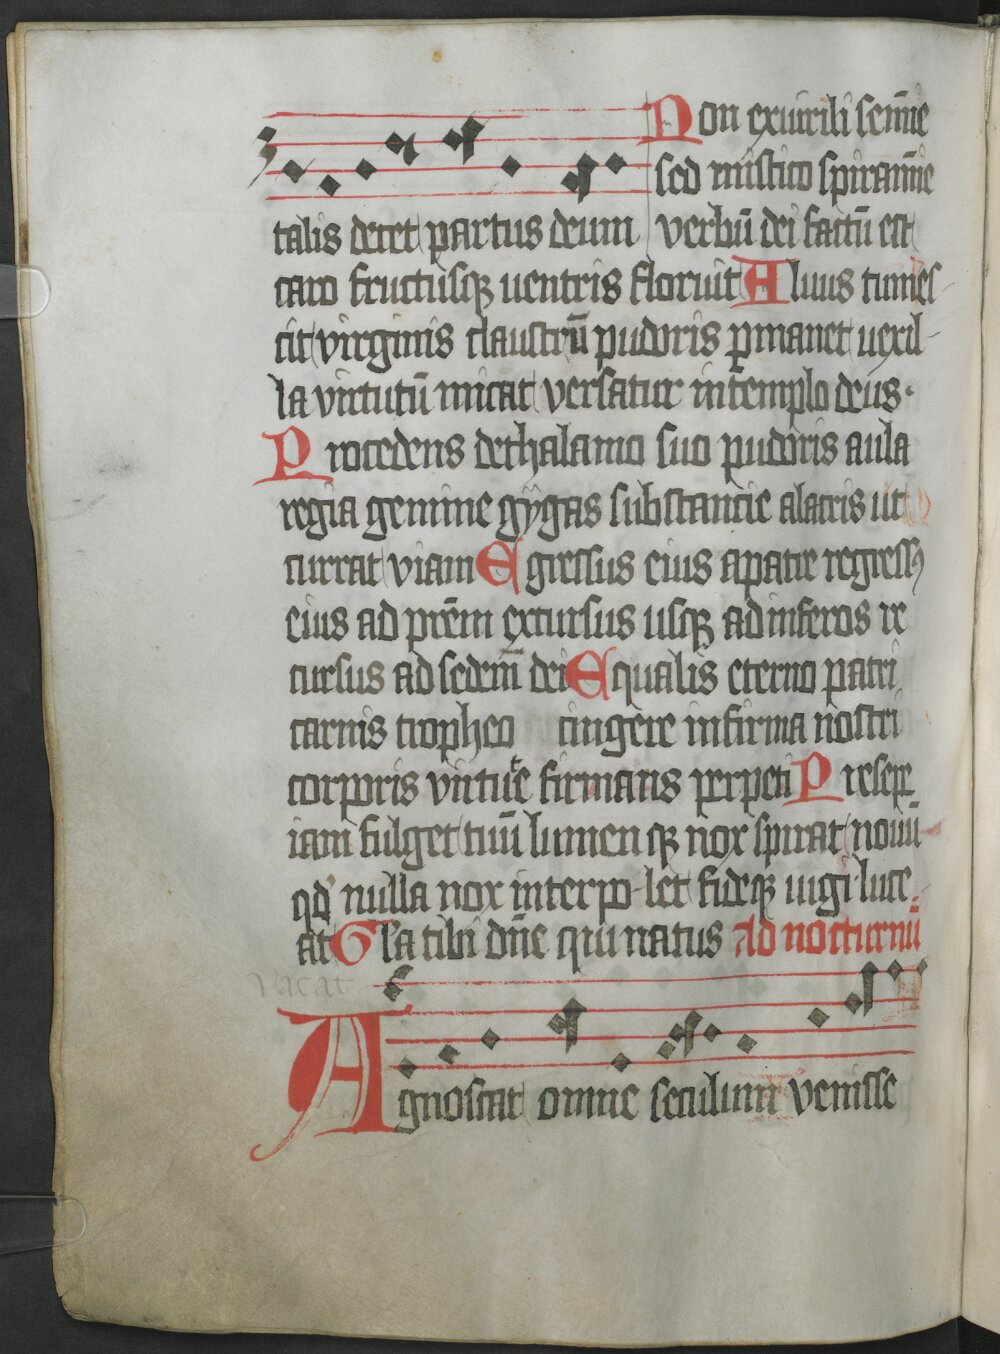 Non exuirili semīe
sed mistico spiramīe
talis decet partus deum verbū dei factū est
caro fructusqꝫ uentris floruit Aluus tumes
cit virginis claustrū pudoris ꝑmanet uexil
la virtutū micat versatur in templo deus.
Procedens dethalamo suo pudoris aula
regia gemine gygas substancie alacris ut
currat viam Egressus eius apatre regressꝰ
eius ad prēm excursus usqꝫ ad inferos re
cursus ad sedem dei Equalis eterno patri
carnis tropheo cingere infirma nostri
corporis virtute firmans perpeti Presepe
iam fulget tuū lumen qꝫ nox spirat nouū
qd nulla nox interpo let fideqꝫ iugi luce
at Gl̄a tibi dn̄e qui natus Ad nocturnū
Vacat
Agnoscat omne seculum venisse